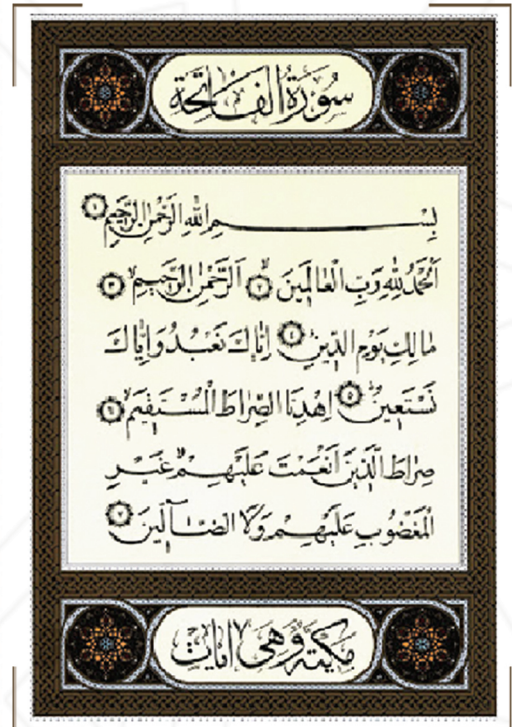 سُورَةُ الْفَاتِحَةِ
بِسْمِ اللّٰهِ الرَّحْمٰنِ الرَّحِيمِ ١
اَلْحَمْدُ لِلّٰهِ رَبِّ الْعَالَمِينَ ٢ اَلرَّحْمٰنِ الرَّحِيمِ ٣
مَالِكِ يَوْمِ الدِّينِ ٤ اِيَّاكَ نَعْبُدُ وَاِيَّاكَ
نَسْتَعِينُ ٥ اِهْدِنَا الصِّرَاطَ الْمُسْتَقِيمَ ٦
صِرَاطَ الَّذِينَ اَنْعَمْتَ عَلَيْهِمْ غَيْرِ
الْمَغْضُوبِ عَلَيْهِمْ وَلَا الضَّٓالِّينَ ٧
مَكِّيَّةٌ وَهِيَ ٧ اٰيَاتٍ